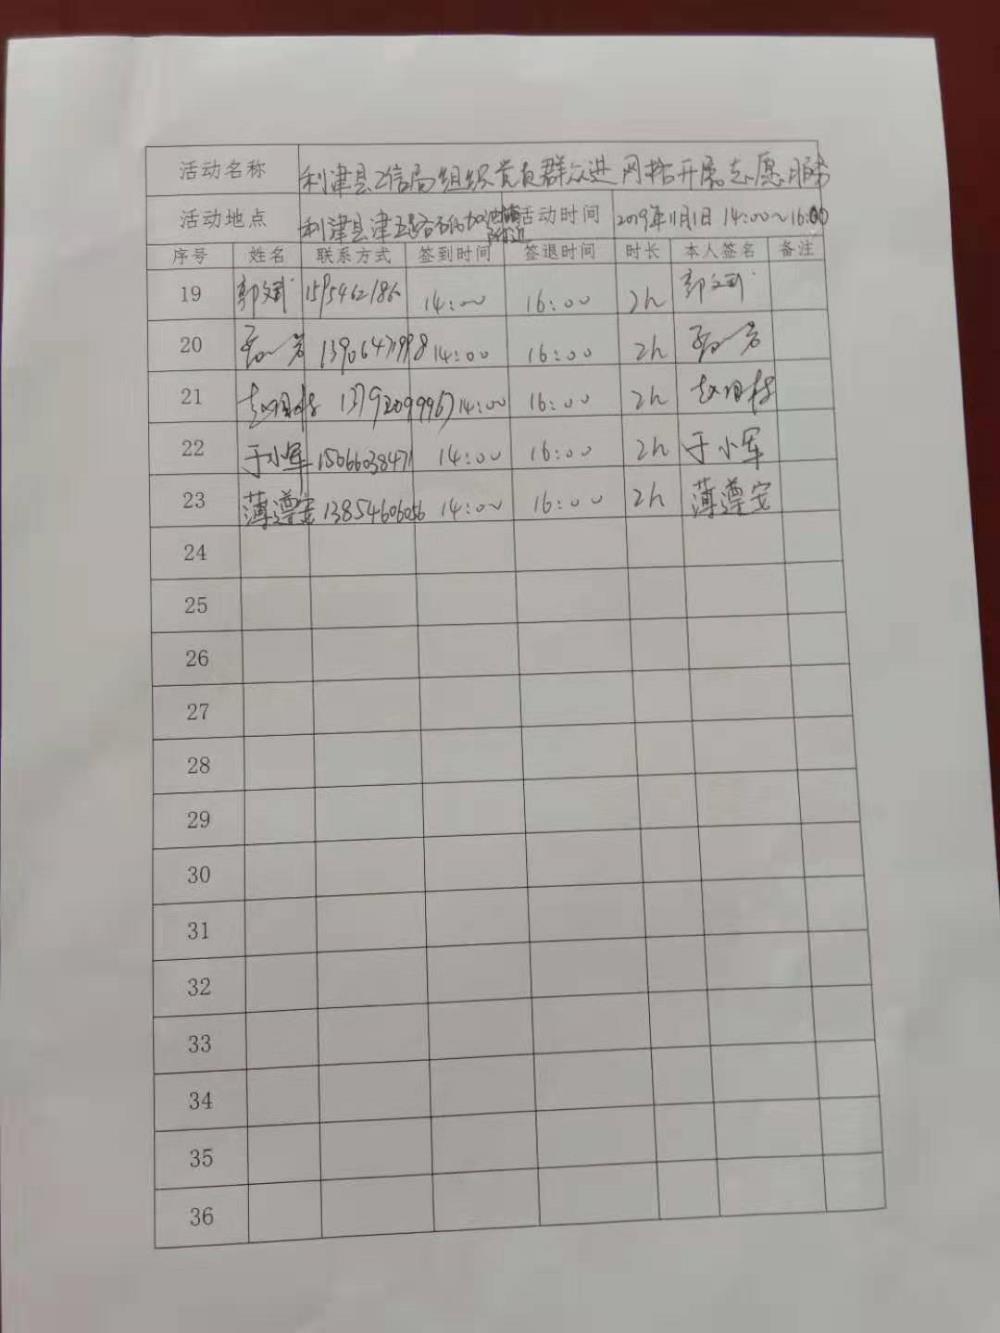 活动名称 利津县工信局组织党员群众进网格开展志愿服务
活动地点 利津县津五路 加油站附近 活动时间 2019年11月1日 14:00~16:00
序号 姓名 联系方式 签到时间 签退时间 时长 本人签名 备注
19 郭文武 14:00 16:00 2h 郭文武
20 14:00 16:00 2h
21 14:00 16:00 2h
22 于小军 15066038471 14:00 16:00 2h 于小军
23 薄遵安 13854606056 14:00 16:00 2h 薄遵安
24
25
26
27
28
29
30
31
32
33
34
35
36